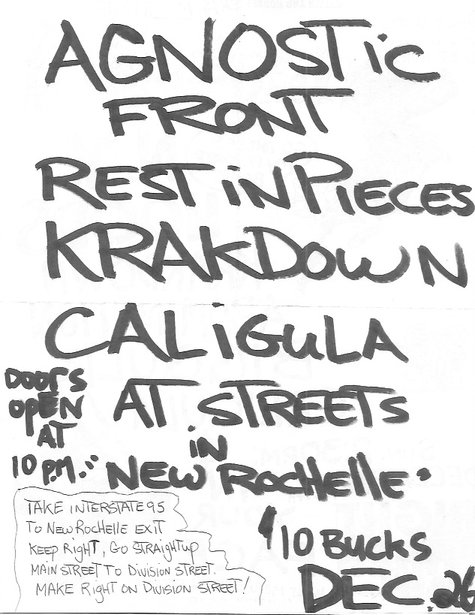 AGNOSTiC
FRONT
REST iN PiECES
KRAKDOWN
CALiGULA
DOORS
OPEN
AT
10 P.M.
AT STREETS
iN
NEW ROCHElle
TAKE INTERSTATE 95
TO NEW ROCHELLE EXIT
KEEP RIGHT, GO STRAIGHT UP
MAIN STREET TO DIVISION STREET.
MAKE RIGHT ON DIVISION STREET!
10 BUCKS
DEC. 26